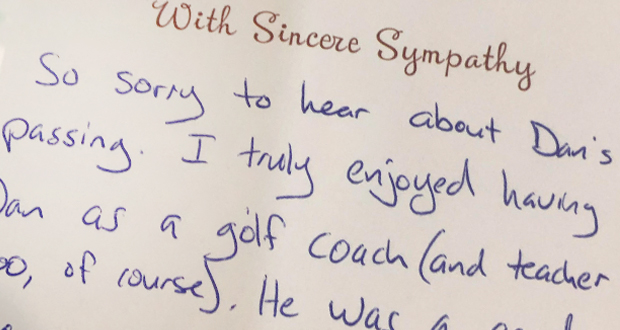 With Sincere Sympathy
So sorry to hear about Dan's
passing. I truly enjoyed having
Dan as a golf coach (and teacher
of course). He was a